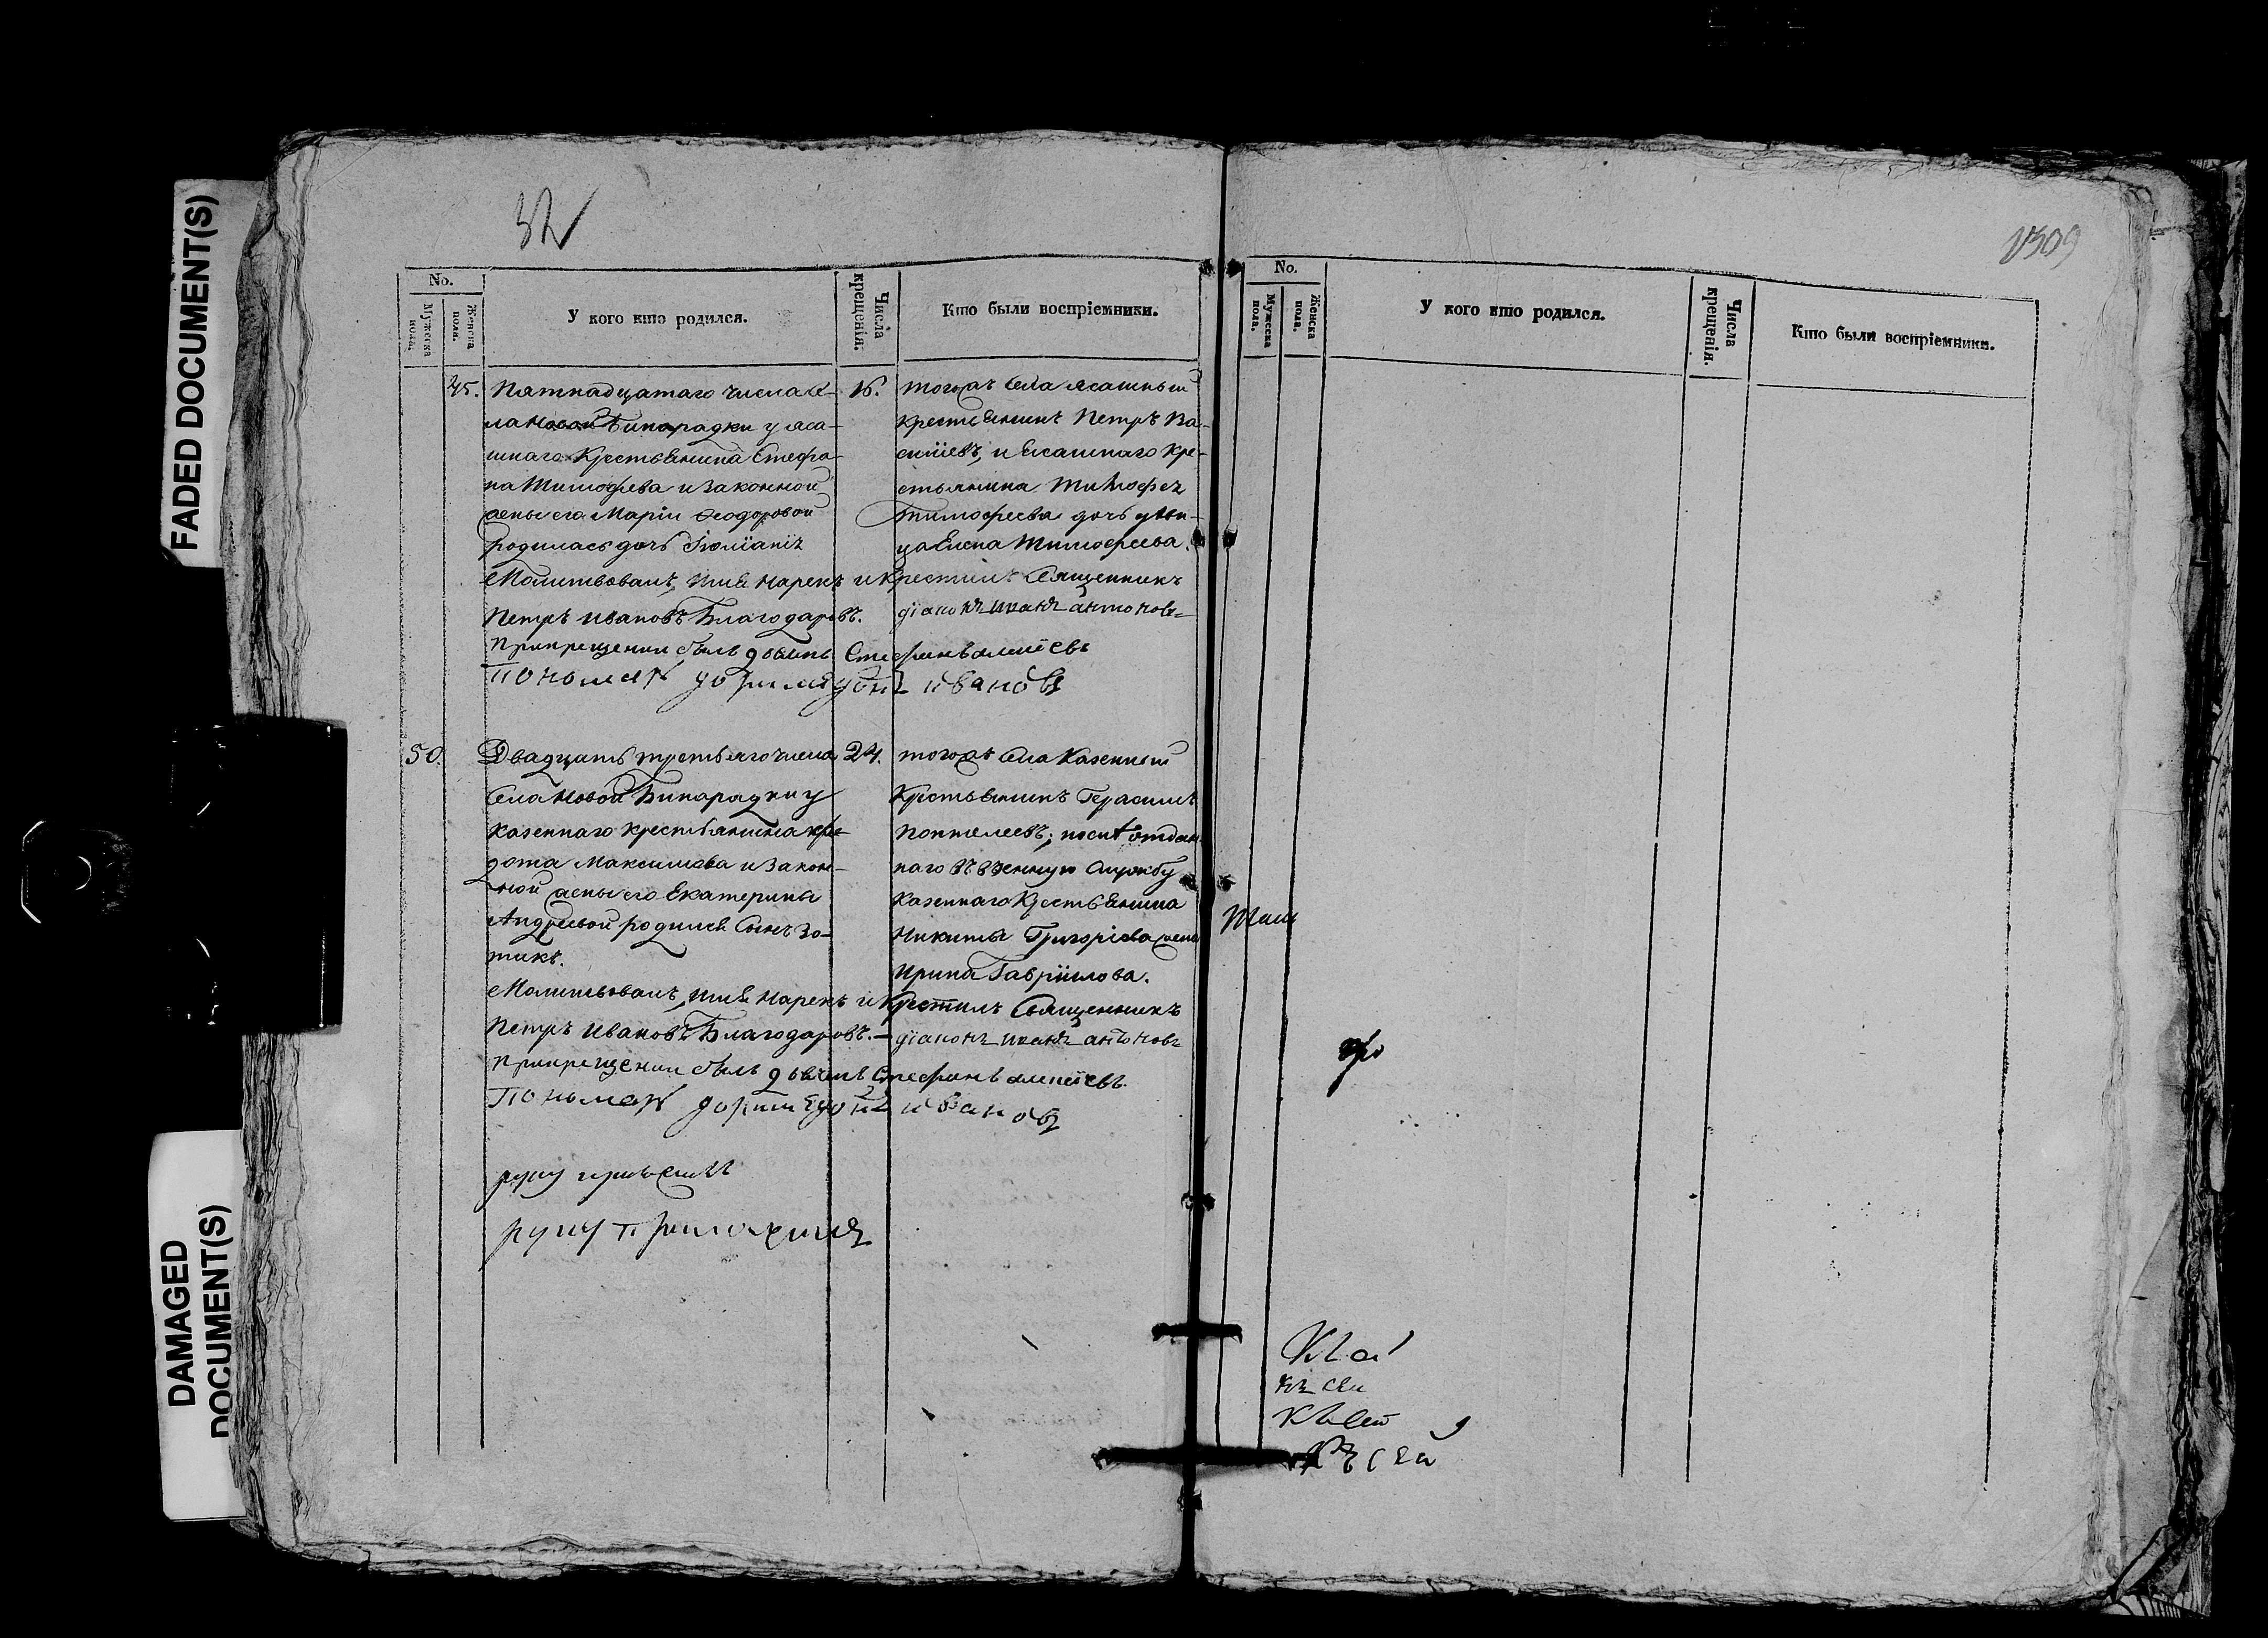 FADED DOCUMENT(S)
DAMAGED DOCUMENT(S)
32
No.
Мужеска пола.
Женска пола.
У кого кто родился.
Числа крещенія.
Кто были воспріемники.
45. Пятнадцатаго числа се-
ла Новой Бинарадки у яса-
шнаго крестьянина Стефа-
на Тимофеева и законной
жены его Маріи Феодоровой
родилась дочь Іюліанія
16. тогожъ села ясашный
крестьянинъ Петръ Ва-
силіевъ, и ясашнаго кре-
стьянина Тимофея
Тимофеева дочь деви-
ца Елена Тимофеева.
Молитвовалъ, имя нарекъ и крестилъ Священникъ
Петръ Ивановъ Благодаровъ. діаконъ иванъ антоновъ
При крещении былъ дьячекъ Стефанъ алексіевъ
Пономар ивановъ
50. Двадцать третьяго числа
села Новой Бинарадки у
казеннаго крестьянина Фе-
дота Максимова и закон-
ной жены его Екатерины
Андреевой родился сынъ Зо-
тикъ.
24. тогожъ села казенный
крестьянинъ Герасимъ
Понтелеевъ; отдан-
наго въ военную службу
казеннаго крестьянина
Никиты Григоріева жена
Ирина Гавріилова.
Молитвовалъ, имя нарекъ и крестилъ Священникъ
Петръ Ивановъ Благодаровъ. діаконъ иванъ антоновъ
При крещении былъ дьячекъ Стефанъ алексіевъ
Пономар ивановъ
руку приложилъ
руку приложилъ
309
No.
Мужеска пола.
Женска пола.
У кого кто родился.
Числа крещенія.
Кто были воспріемники.
къ сей
къ сей
къ сей